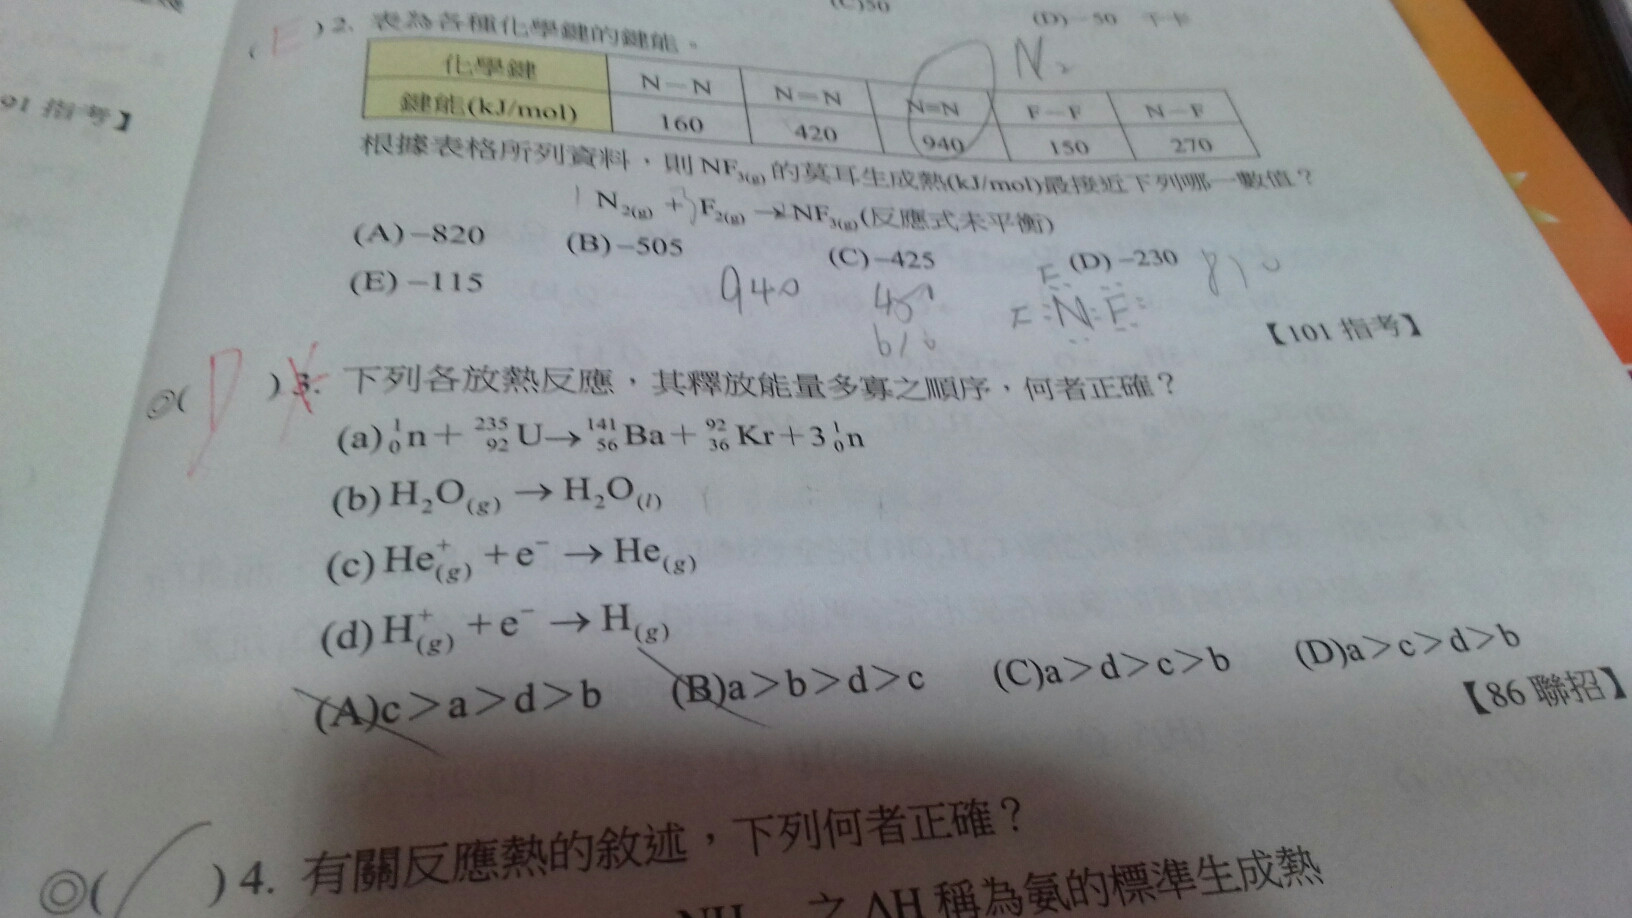 (C)50
(D)-50 千卡
(E)2. 表為各種化學鍵的鍵能。
化學鍵 N－N N＝N N≡N F－F N－F
鍵能(kJ/mol) 160 420 940 150 270
N₂
91 指考】
根據表格所列資料，則NF₃₍g₎的莫耳生成熱(kJ/mol)最接近下列哪一數值？
1 N₂₍g₎ + 3 F₂₍g₎ → 2 NF₃₍g₎(反應式未平衡)
(A)－820 (B)－505 (C)－425 (D)－230 810
(E)－115 940 450
F:N:F:
F
【101 指考】
◎(D)3. 下列各放熱反應，其釋放能量多寡之順序，何者正確？
(a)¹₀n＋²³⁵₉₂U→¹⁴¹₅₆Ba＋⁹²₃₆Kr＋3¹₀n
(b)H₂O(g) → H₂O(l)
(c)He⁺(g) ＋e⁻ → He(g)
(d)H⁺(g) ＋e⁻ → H(g)
(A)c＞a＞d＞b (B)a＞b＞d＞c (C)a＞d＞c＞b (D)a＞c＞d＞b
【86 聯招】
◎( )4. 有關反應熱的敘述，下列何者正確？
之 ΔH 稱為氨的標準生成熱